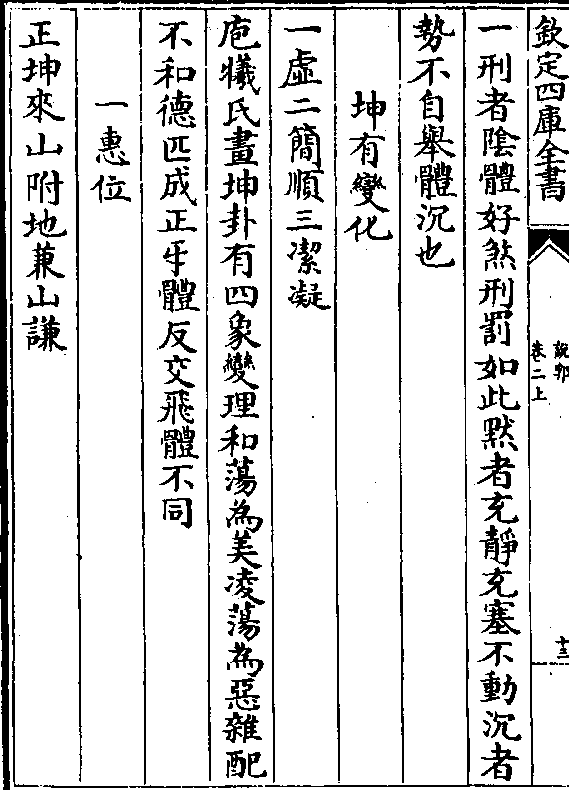 欽定四庫全書
說郛
卷二上
十三
一刑者陰體好煞刑罰如此默者充靜充塞不動沉者
勢不自舉體沉也
坤有變化
一虛二簡順三潔凝
庖犧氏畫坤卦有四象變理和蕩為美凌蕩為惡雜配
不和德匹成正乎體反交飛體不同
一惠位
正坤來山附地兼山謙